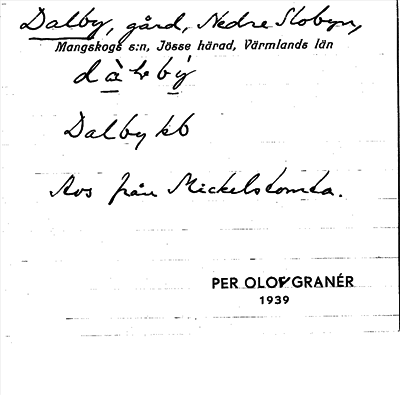 Dalby, gård, Nedre Slobyn,
Mangskogs s:n, Jösse härad, Värmlands län
Dalby kb
Avs från Mickelstomta.
PER OLOF GRANÉR
1939